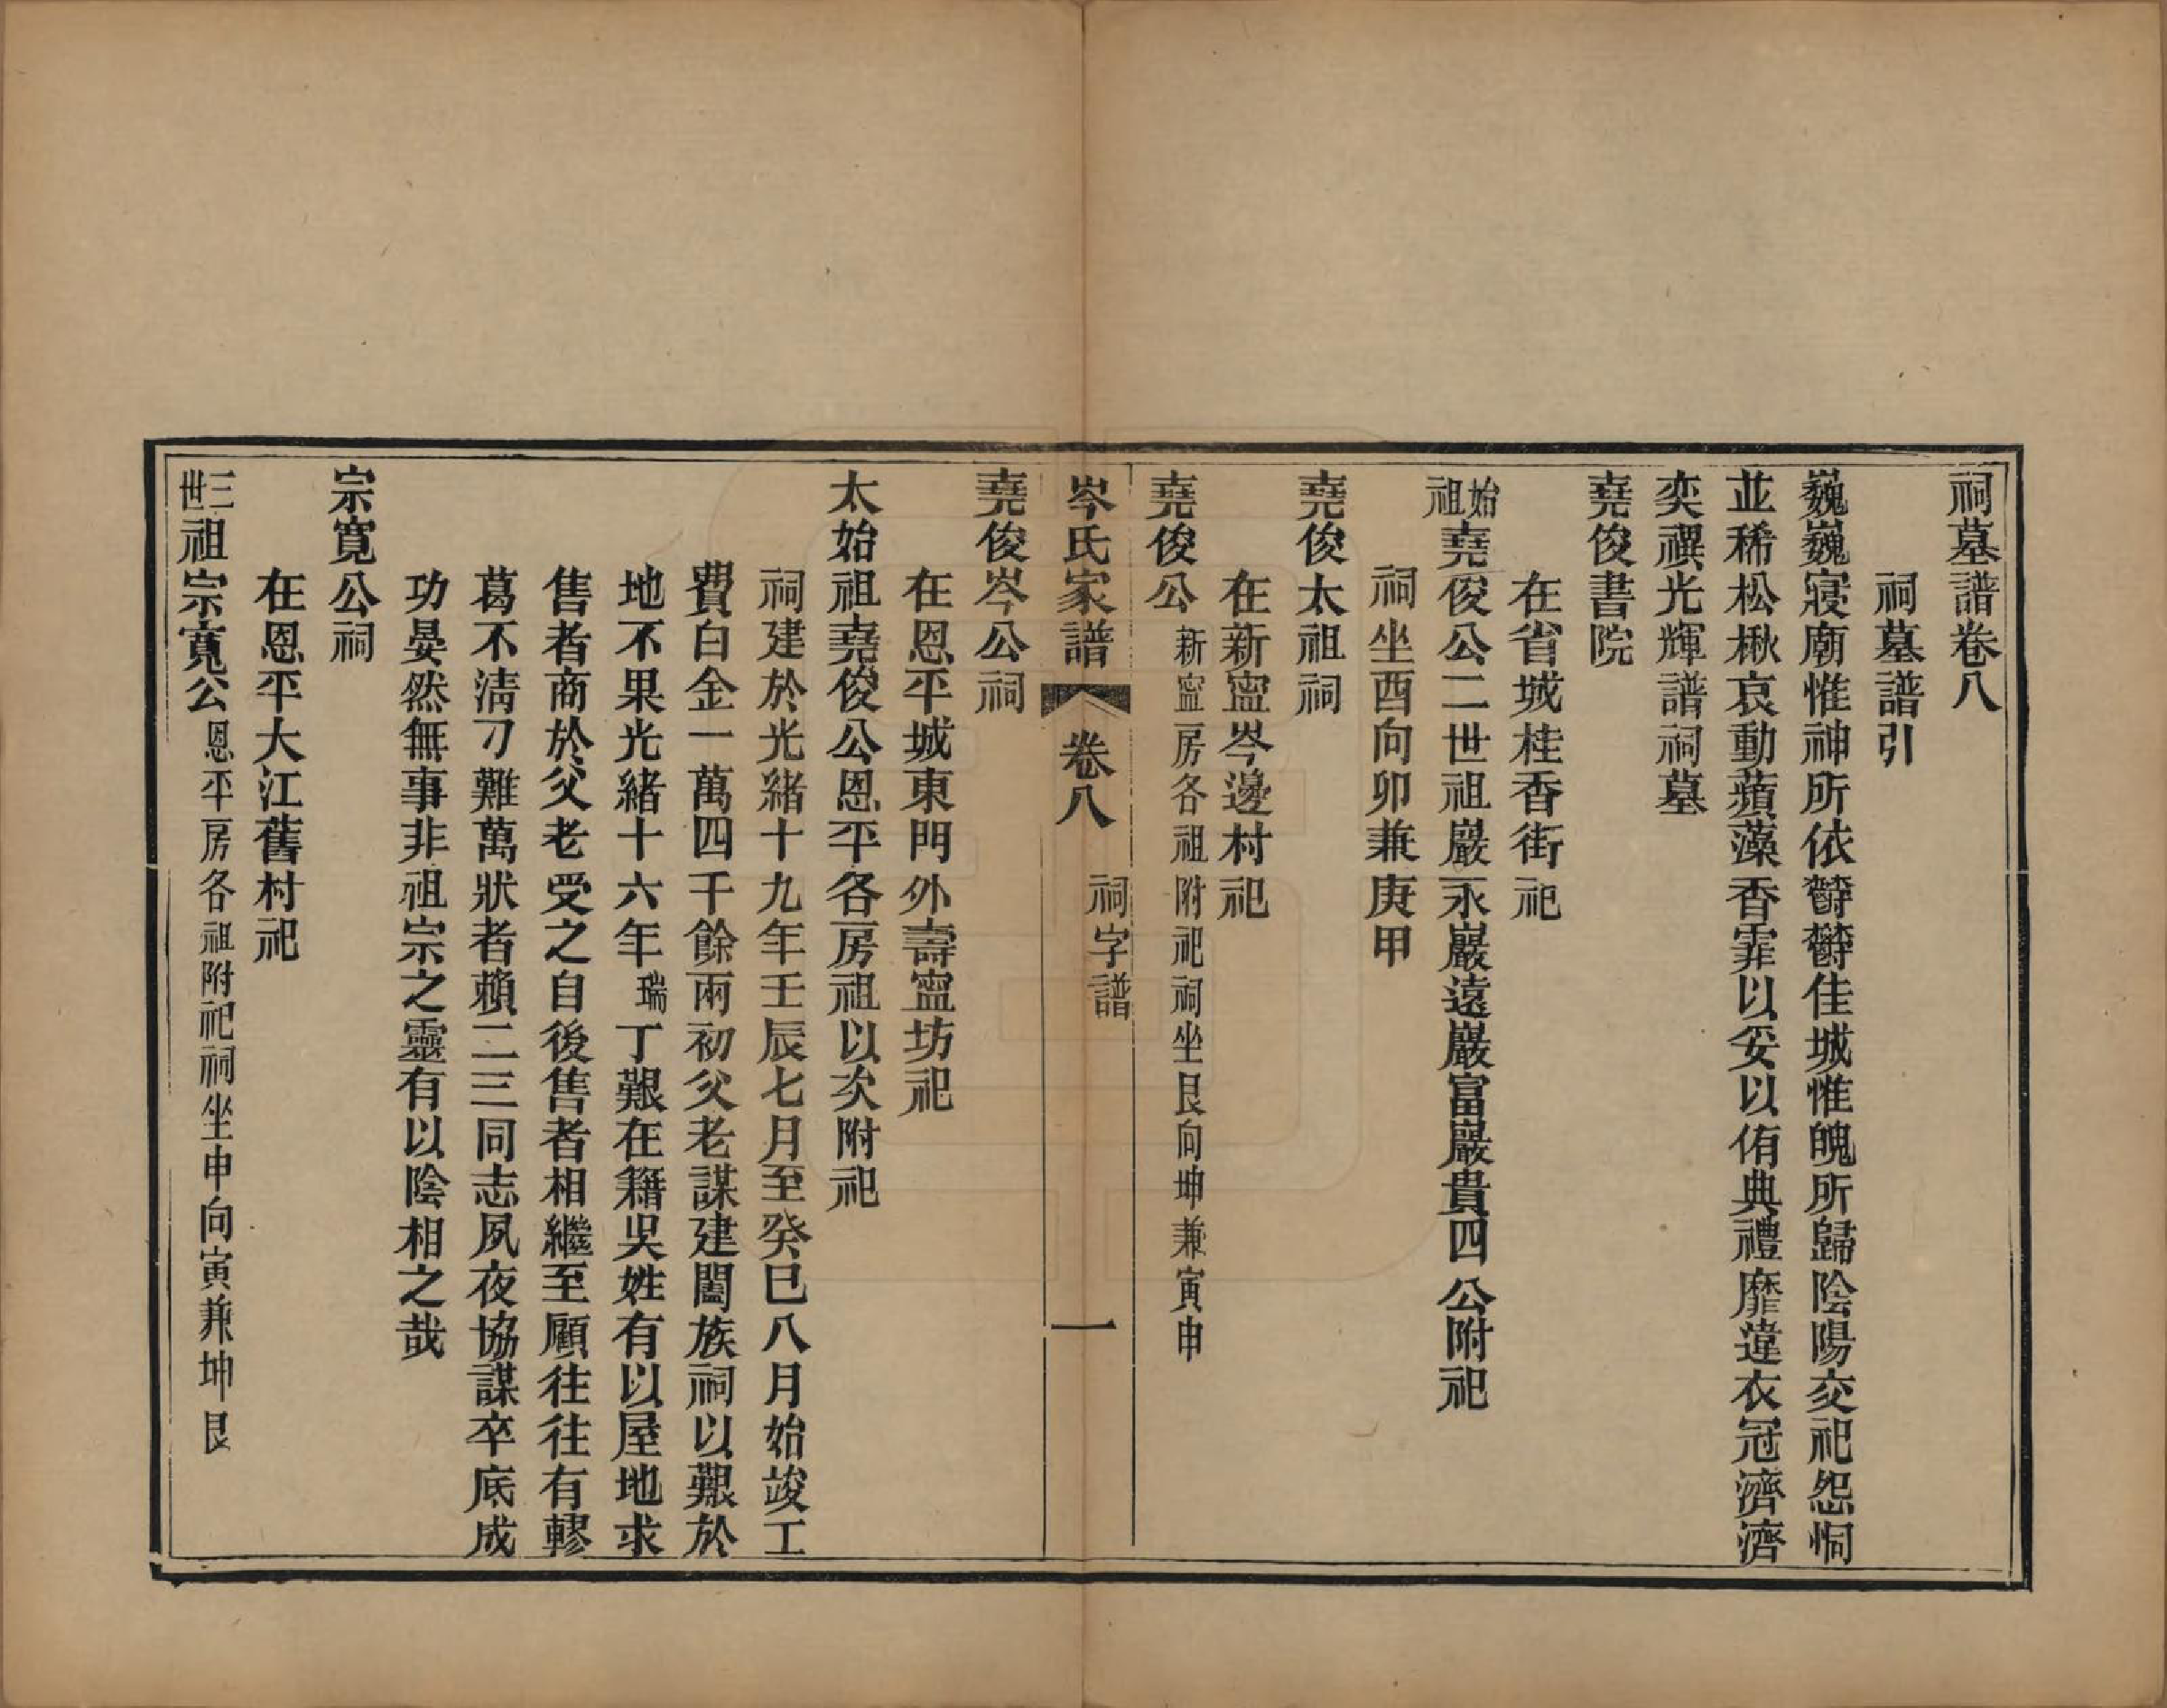 祠墓譜卷八
祠墓譜引
巍巍寢廟惟神所依欝欝佳城惟魄所歸陰陽交祀怨恫
並稀松楸哀動蘋藻香霏以妥以侑典禮靡違衣冠濟濟
奕禩光輝譜祠墓
堯俊書院
在省城桂香街祀
始祖堯俊公二世祖巖永巖遠巖富巖貴四公附祀
祠坐酉向卯兼庚甲
堯俊太祖祠
在新寍岑邊村祀
堯俊公新寍房各祖附祀祠坐艮向坤兼寅申
岑氏家譜 卷八 祠宇譜 一
堯俊岑公祠
在恩平城東門外壽寍坊祀
太始祖堯俊公恩平各房祖以次附祀
祠建於光緒十九年壬辰七月至癸巳八月始竣工
費白金一萬四千餘兩初父老謀建闔族祠以艱於
地不果光緒十六年瑞丁艱在籍吳姓有以屋地求
售者商於父老受之自後售者相繼至顧往往有轇
葛不清刀難萬狀者賴二三同志夙夜協謀卒底成
功晏然無事非祖宗之靈有以陰相之哉
宗寬公祠
在恩平大江舊村祀
三世祖宗寬公恩平房各祖附祀祠坐申向寅兼坤艮